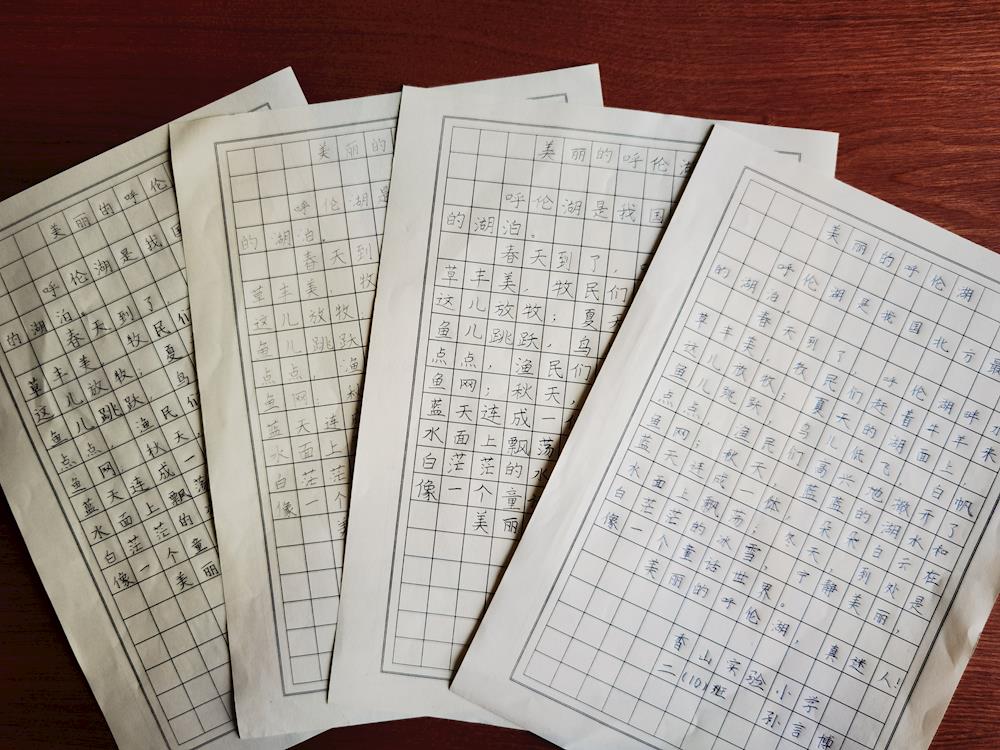 美丽的呼伦
呼伦湖是我国
的湖泊。
春天到了
草丰美，牧民们
这儿放牧；夏
鱼儿跳跃，鸟
点点，渔民们
鱼网；秋天，
蓝天连成一
水面上飘荡
白茫茫的
像一个童
美丽
美丽的
呼伦湖是
的湖泊。
春天到
草丰美，牧
这儿放牧
鱼儿跳跃
点点，渔
鱼网；秋
蓝天连
水面上
白茫茫
像一个
美
美丽的呼伦湖
呼伦湖是我国
的湖泊。
春天到了，
草丰美，牧民们
这儿放牧；夏天
鱼儿跳跃，鸟
点点，渔民们
鱼网；秋天，
蓝天连成一
水面上飘荡
白茫茫的冰
像一个童
美丽
美丽的呼伦湖
呼伦湖是我国北方最
的湖泊。
春天到了，呼伦湖畔水
草丰美，牧民们赶着牛羊，来
这儿放牧；夏天的湖面上，
鱼儿跳跃，鸟儿低飞，白帆
点点，渔民们高兴地撒开了
鱼网；秋天，蓝蓝的湖水和
蓝天连成一体，朵朵白云在
水面上飘荡；冬天，到处是
白茫茫的冰雪，宁静美丽，
像一个童话世界。
美丽的呼伦湖，真迷人！
香山实验小学
二(10)班 孙言博